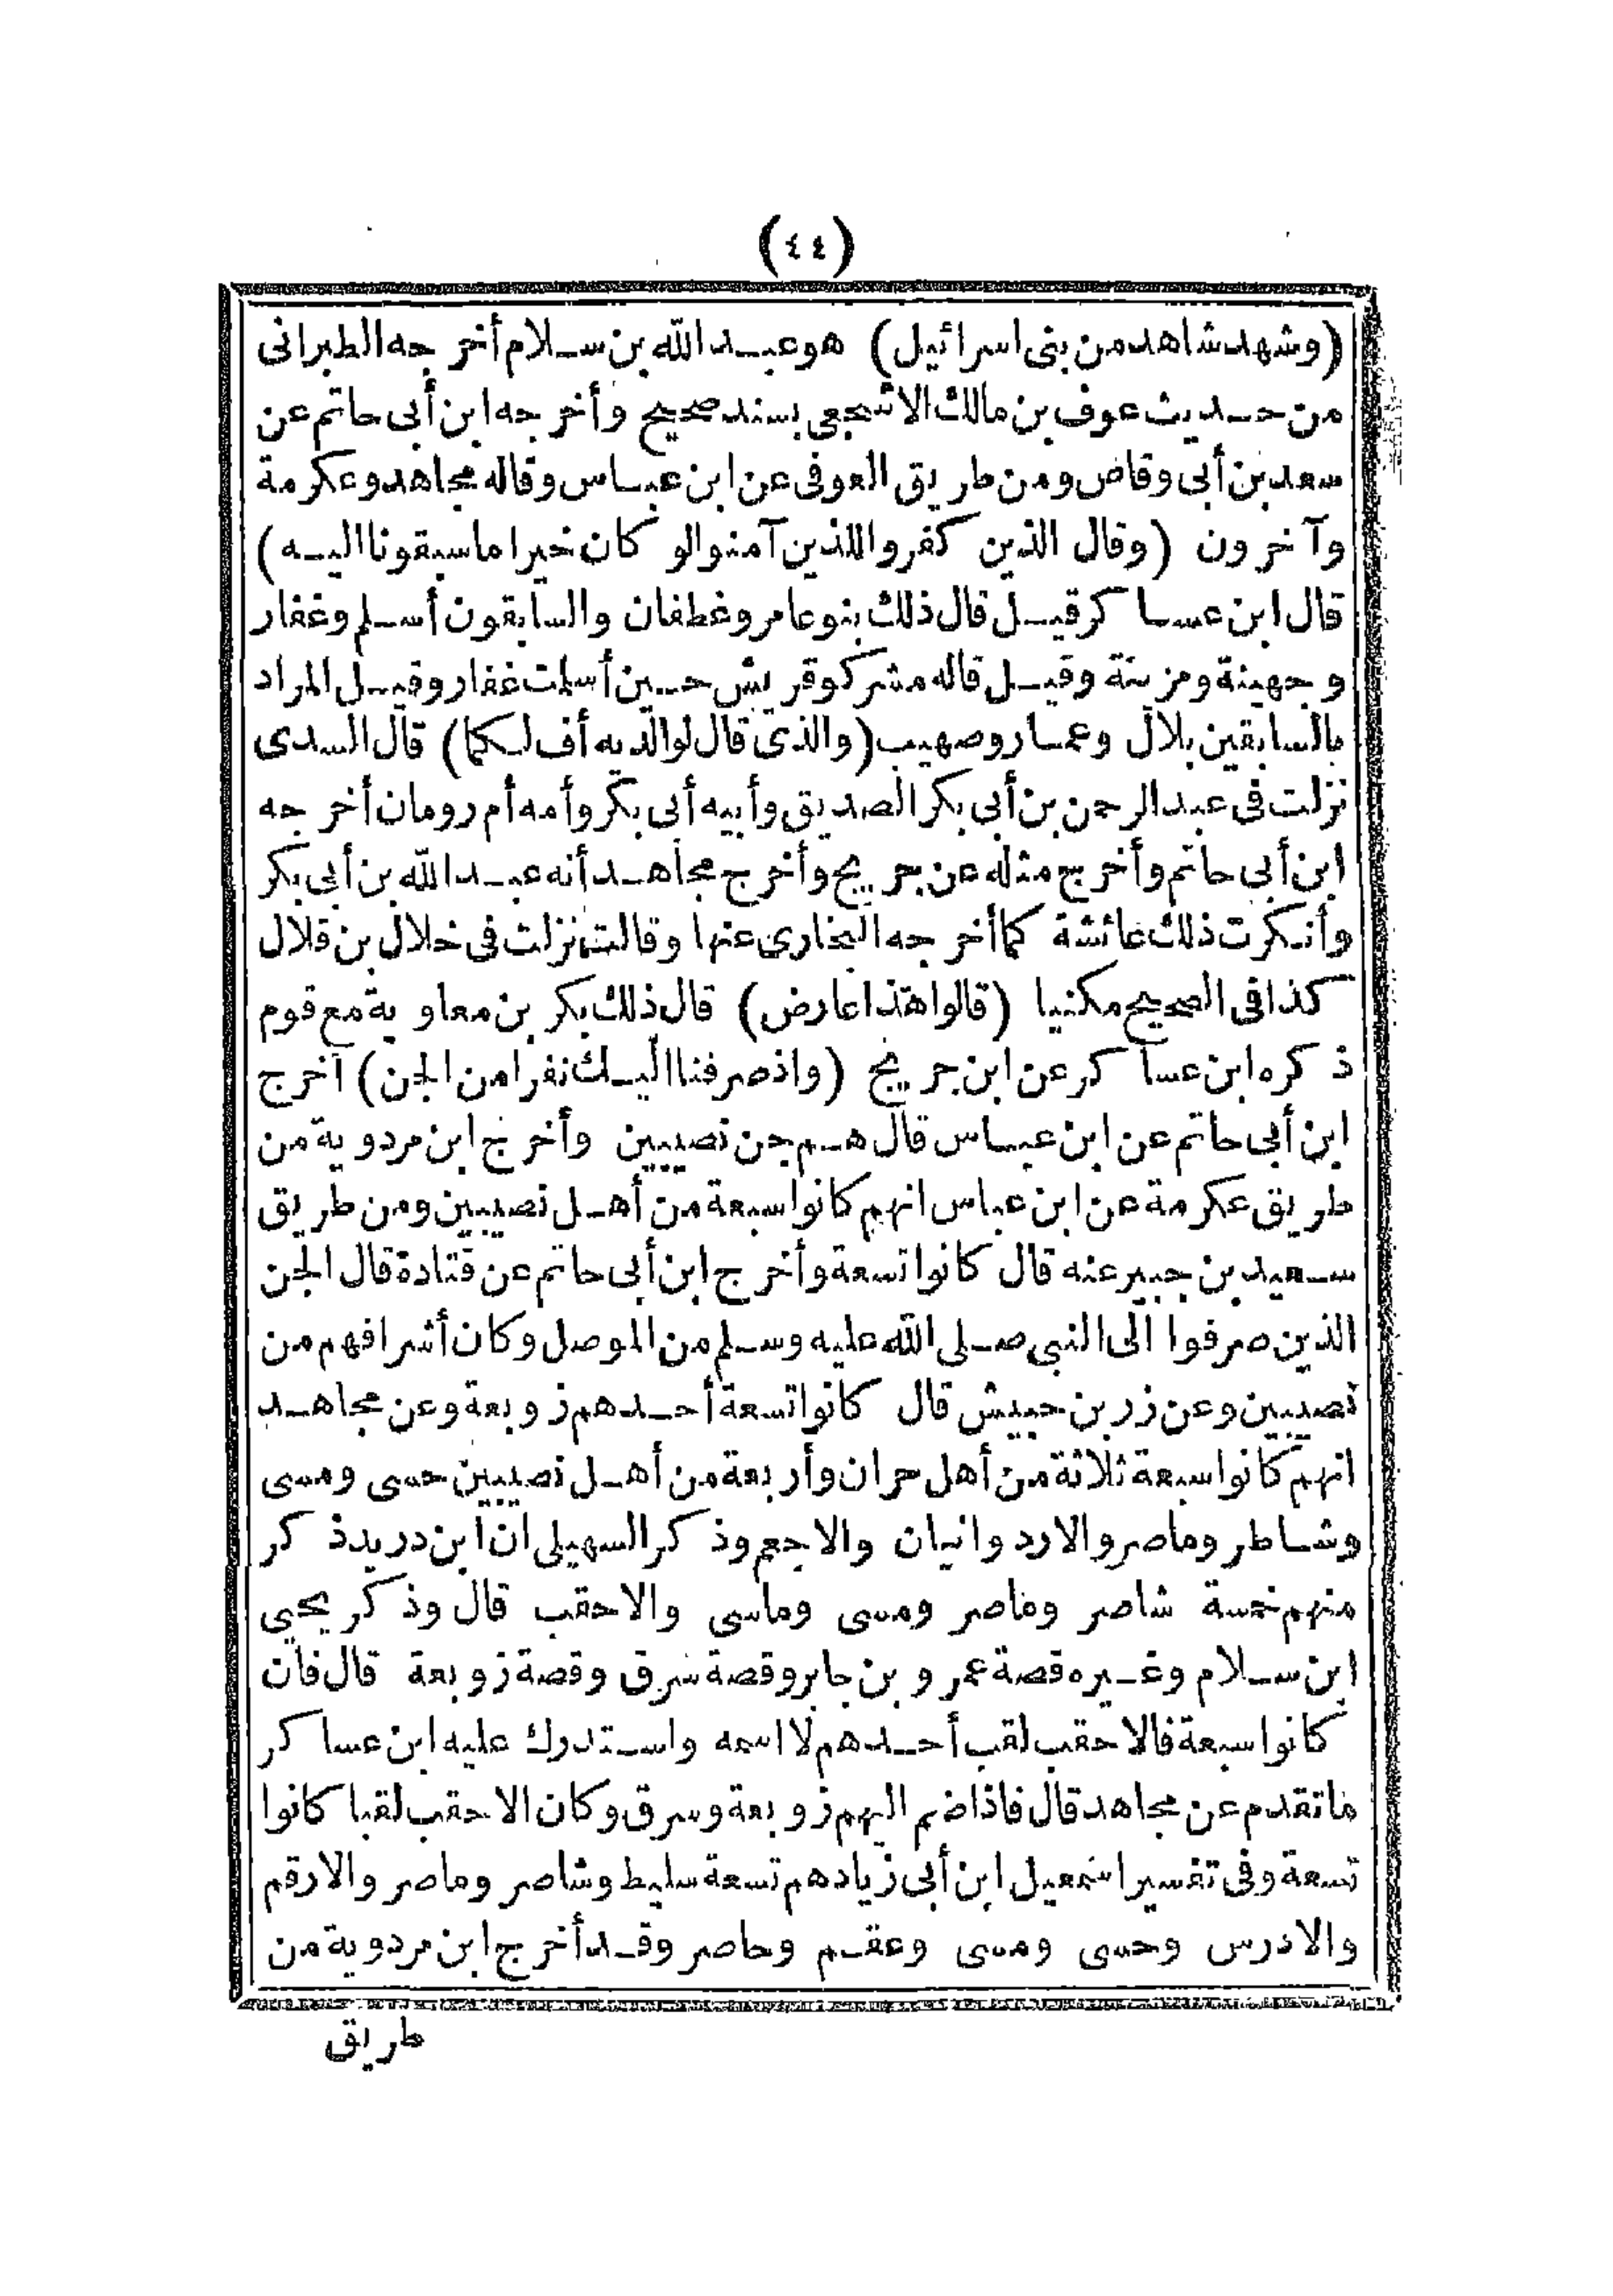 (٤٤)
(وشهد شاهد من بنى اسرائيل) هو عبد الله بن سلام أخرجه الطبرانى
من حديث عوف بن مالك الاشجعى بسند صحيح وأخرجه ابن أبى حاتم عن
سعد بن أبى وقاص ومن طريق العوفى عن ابن عباس وقاله مجاهد وعكرمة
وآخرون (وقال الذين كفروا للذين آمنوا لو كان خيرا ما سبقونا اليه)
قال ابن عساكر قيل قال ذلك بنو عامر وغطفان والسابقون أسلم وغفار
وجهينة ومزينة وقيل قاله مشركو قريش حين أسلمت غفار وقيل المراد
بالسابقين بلال وعمار وصهيب (والذى قال لوالديه أف لكما) قال السدى
نزلت فى عبد الرحمن بن أبى بكر الصديق وأبيه أبى بكر وأمه أم رومان أخرجه
ابن أبى حاتم وأخرج مثله عن جريج وأخرج مجاهد أنه عبد الله بن أبى بكر
وأنكرت ذلك عائشة كما أخرجه البخارى عنها وقالت نزلت فى خلال بن قلال
كذا فى الصحيح مكنيا (قالوا هذا عارض) قال ذلك بكر بن معاوية مع قوم
ذكره ابن عساكر عن ابن جريج (واذ صرفنا اليك نفرا من الجن) أخرج
ابن أبى حاتم عن ابن عباس قال هم جن نصيبين وأخرج ابن مردوية من
طريق عكرمة عن ابن عباس انهم كانوا سبعة من أهل نصيبين ومن طريق
سعيد بن جبير عنه قال كانوا تسعة وأخرج ابن أبى حاتم عن قتادة قال الجن
الذين صرفوا الى النبى صلى الله عليه وسلم من الموصل وكان أشرافهم من
نصيبين وعن زر بن حبيش قال كانوا تسعة أحدهم زوبعة وعن مجاهد
انهم كانوا سبعة ثلاثة من أهل حران وأربعة من أهل نصيبين حسى ومسى
وشاطر وماصر والارد وانيان والاجعم وذكر السهيلى ان ابن دريد ذكر
منهم خمسة شاصر وماصر ومسى وماسى والاحقب قال وذكر يحيى
ابن سلام وغيره قصة عمرو بن جابر وقصة سرق وقصة زوبعة قال فان
كانوا سبعة فالاحقب لقب أحدهم لا اسمه واستدرك عليه ابن عساكر
ما تقدم عن مجاهد قال فاذا ضم اليهم زوبعة وسرق وكان الاحقب لقبا كانوا
تسعة وفى تفسير اسمعيل ابن أبى زياد هم تسعة سليط وشاصر وماصر والارقم
والادرس وحسى ومسى وعقم وحاصر وقد أخرج ابن مردوية من
طريق